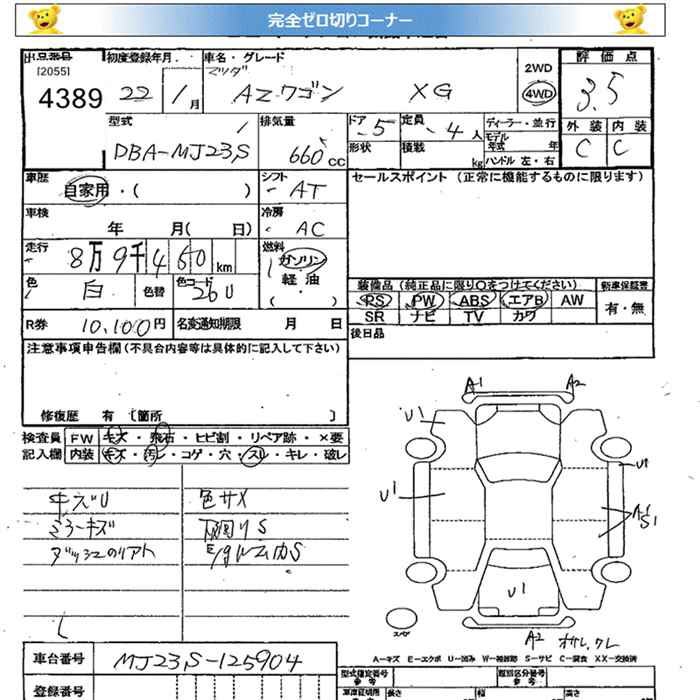 完全ゼロ切りコーナー
出品番号 初度登録年月 車名・グレード 評価点
[2055] マツダ 2WD
4389 22 1月 AZワゴン XG 4WD 3.5
型式 排気量 ドア 5 定員 4人 ディーラー・並行 外装 内装
モデル年式 年
DBA-MJ23S 660cc 形状 積載 kg ハンドル 左・右 C C
車歴 自家用・( ) シフト AT セールスポイント (正常に機能するものに限ります)
車検 年 月( 日) 冷房 AC
走行 8万9千460km 燃料 ガソリン・軽油 ( )
色 白 色替 色コード 26U 装備品 (純正品に限り○をつけてください) 新車保証書
PS PW ABS エアB AW 有・無
R券 10,100円 名変通知期限 月 日 SR ナビ TV カワ
注意事項申告欄(不具合内容等は具体的に記入して下さい) 後日品
修復歴 有 [箇所 ]
検査員 FW キズ・飛石・ヒビ割・リペア跡・×要
記入欄 内装 キズ・汚レ・コゲ・穴・スレ・キレ・破レ
キズU 色サメ
ミラーキズ 下回りS
A1 A2
U1 U1
U1
U1
A2
スペア
A-キズ E-エクボ U-凹み W-補修跡 S-サビ C-腐食 XX-交換済
車台番号 MJ23S-125904
型式指定番号 類別区分番号
登録番号 長さ 幅 高さ